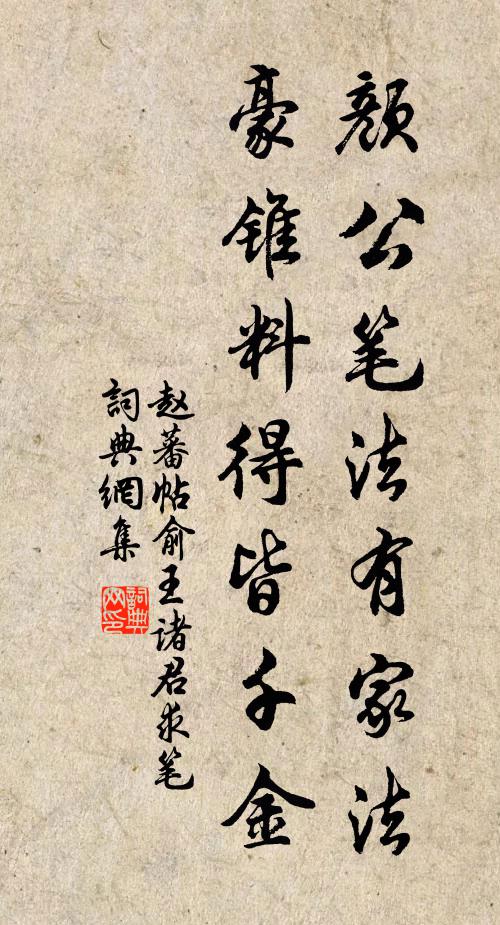 颜公笔法有家法
豪锥料得皆千金
赵蕃帖俞王诸君求笔
詞典網集
詞典
网印